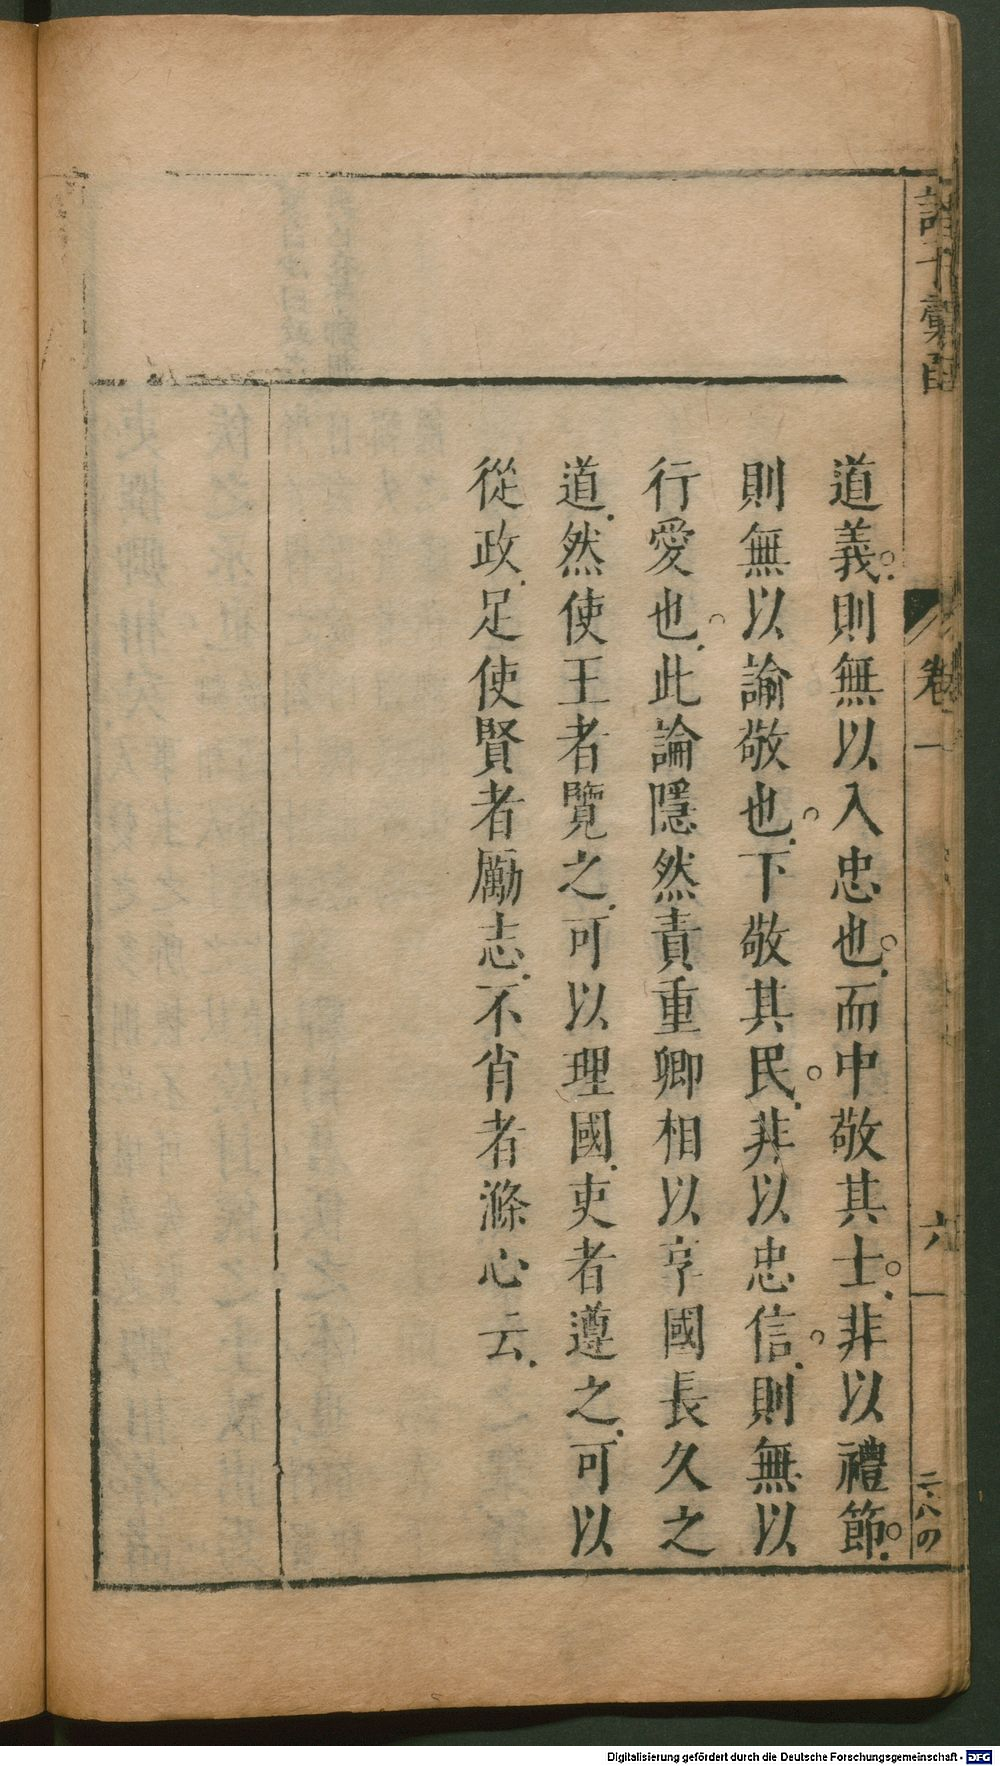 諸子彙函
卷一
六
二八の
道義則無以入忠也而中敬其士非以禮節
則無以諭敬也下敬其民非以忠信則無以
行愛也此論隱然責重卿相以享國長久之
道然使王者覽之可以理國吏者遵之可以
從政足使賢者勵志不肖者滌心云
Digitalisierung gefördert durch die Deutsche Forschungsgemeinschaft - DFG